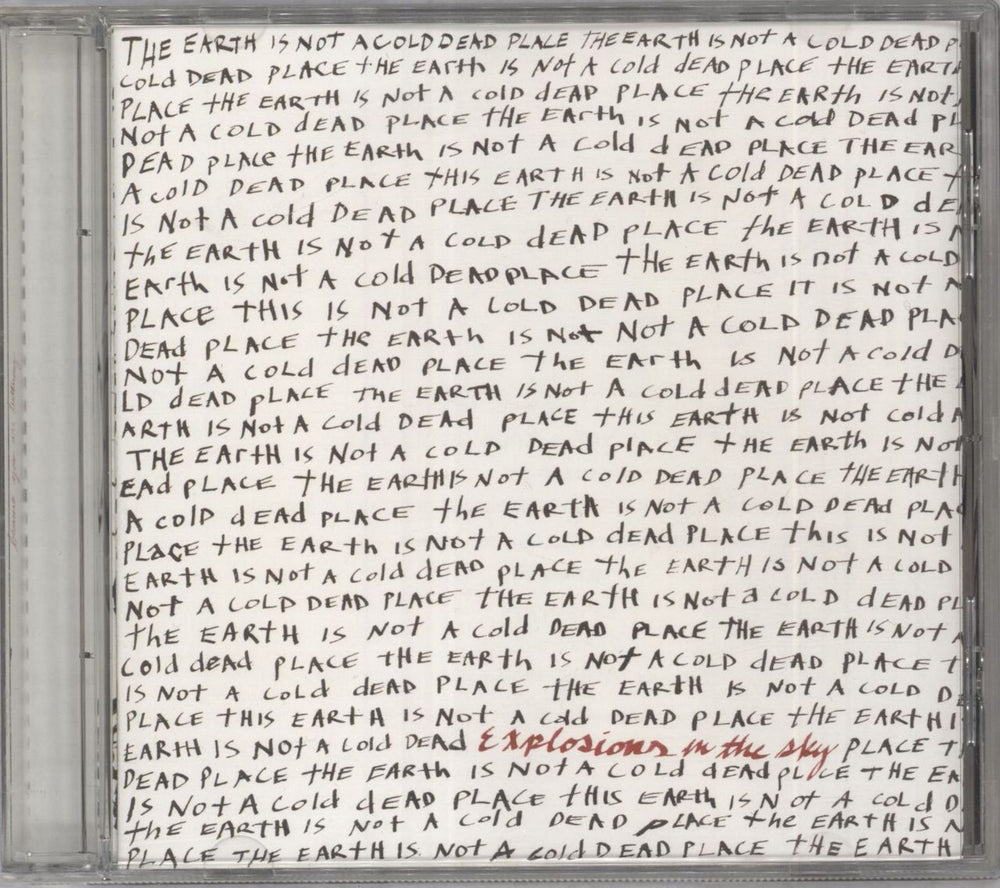 THE EARTH IS NOT A COLD DEAD PLACE THE EARTH IS NOT A COLD DEAD P
COld DEAD PLACE tHE EARth IS NOt A Cold dEAD PLACE tHE EARTH
PLACE tHE EARTH IS Not A cold dEAD PLACE tHE EARth IS NOt
NOt A COLD dEAD PLACE tHE EARth IS Not A cold DEAd PL
DEAD PLACe tHE EARth IS Not A Cold dEAD PLACE THE EAR
A COlD DEAD PLACE tHIS EARtH IS Not A Cold DEAD PLACE t
IS Not A cold DEAD PLACE THE EARtH IS Not A COLD dE
thE EARtH IS NOT A COLD dEAD PLACE thE EARtH IS
EARth IS Not A cold DEAD PLACE tHE EARth is not A COLD
PLACE THIS IS NOt A COLD DEAD PLACE IT IS Not A
DEAd PLACE tHE EARth IS Not NOt A COLD DEAD PLA
NOt A COLd dEAD PLACE thE EARth IS Not A cold D
LD dEAD pLACE THE EARtH IS Not A Cold dEAD pLACE tHE
ARTH IS Not A Cold DEAD PLACE tHIS EARtH IS Not cold A
THE EARtH IS Not A COLD DEAd plACE tHE EARth IS Not
EAd pLACE tHE EARtH IS NOt A COlD DEAD PLACE tHE EARtH
A colD dEAd pLACE thE EARtH IS Not A COLD DEAd PLAC
PLACE tHE EARth IS NOt A COLD dEAd PLACE this IS Not
EARtH IS Not A Cold dEAD pLACE thE EARTH IS Not A COLD
NOt A COLD DEAD PLACE tHE EARtH IS Not a COLD dEAD PL
thE EARtH IS NOt A cold DEAD PLACE THE EARtH IS Not A
COld dEAd PLACE tHE EARth IS NOt A COLD dEAD PLACE t
IS NOt A COLd dEAD PLACE tHE EARtH IS NOt A COLD D
PLACE tHIS EARtH IS NOt A cold DEAD PLACE tHE EARtH I
EARtH IS NOt A Cold DEAD Explosions in the sky PLACE T
DEAD PLACE tHE EARth IS NOt A COLD dEAd pLACE tHE EA
IS NOt A Cold dEAD PLACe tHIS EARth IS Not A COLd D
thE EARTH IS NOt A Cold DEAD pLACE the EARtH IS N
PLACE THE EARtH IS NOt A cold DEAD PLACE tHE EARTH